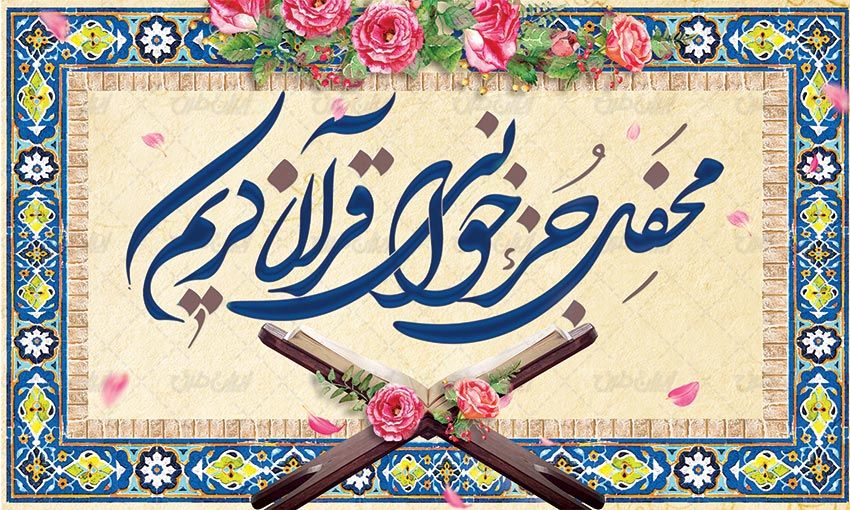 محفل جزءخوانی قرآن کریم